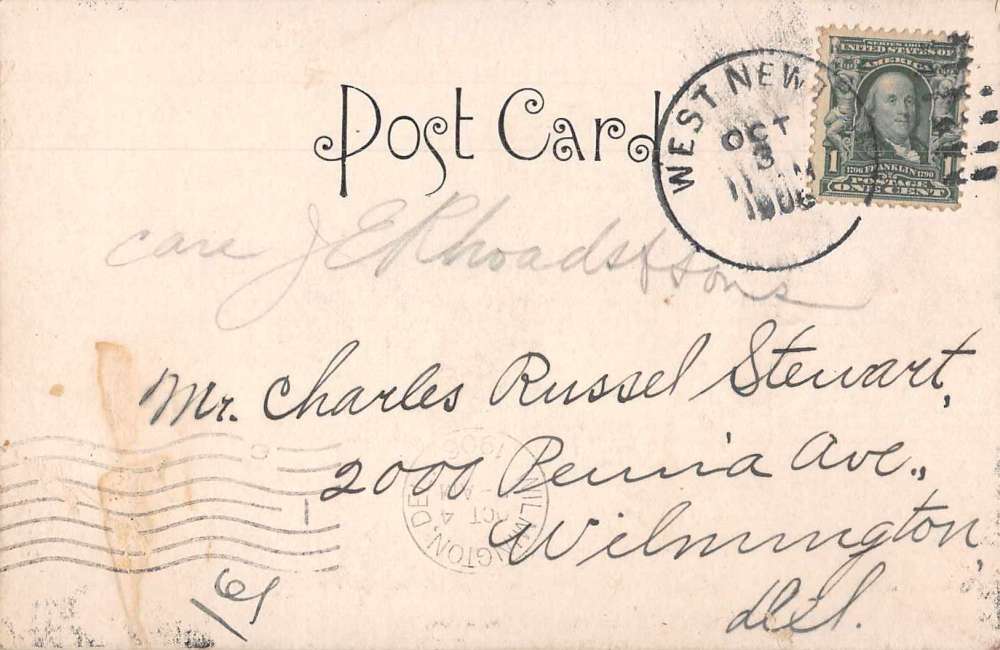 Post Card
WEST NEW
OCT
3
1906
SERIES 1902
UNITED STATES OF
AMERICA
1706 FRANKLIN 1790
POSTAGE
1 1
ONE CENT
care J E Rhoads & Sons
Mr. Charles Russel Stewart,
2000 Penn'a Ave.,
Wilmington,
Del.
WILMINGTON, DEL
OCT 4
1906